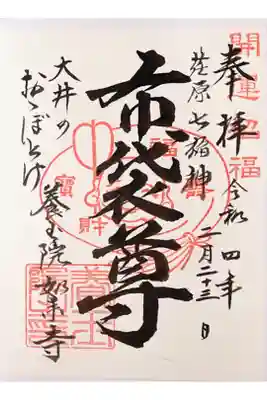 開運招福
奉拝 令和四年
荏原七福神 二月二十三日
布袋尊
大井の
おゝぼとけ
養玉院 如来寺
福
壽
寶
財